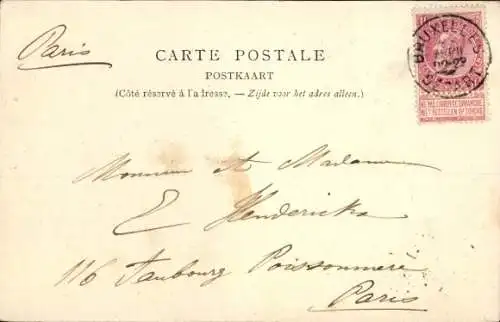 Paris
CARTE POSTALE
POSTKAART
(Côté réservé à l'adresse. — Zijde voor het adres alleen.)
BRUXELLES
NE PAS LIVRER LE DIMANCHE
NIET BESTELLEN OP ZONDAG
Monsieur et Madame
E Hendericks
116 Faubourg Poissonnière
Paris